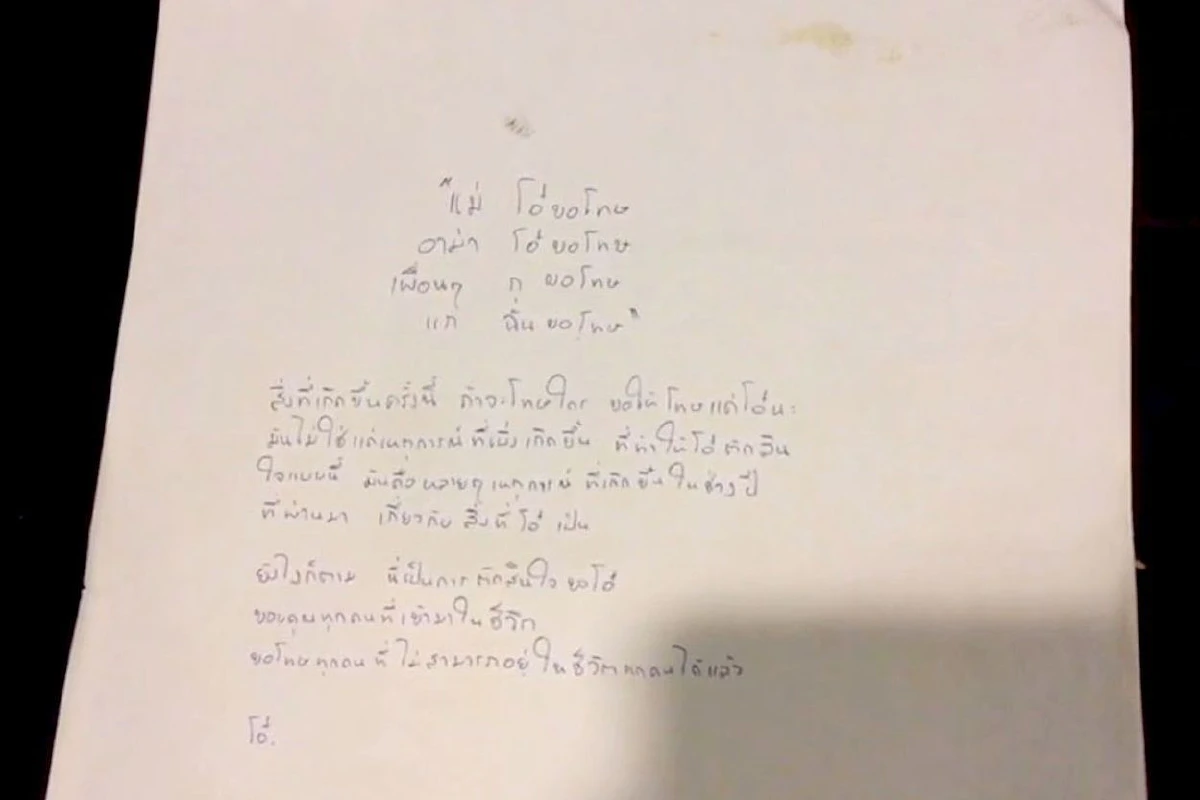 "แม่ โอ๋ขอโทษ
อาม่า โอ๋ขอโทษ
เพื่อนๆ กุ ขอโทษ
แก ฉั่นขอโทษ"
สิ่งที่เกิดขึ้นครั้งนี้ ถ้าจะโทษใคร ขอให้โทษแค่โอ๋นะ
มันไม่ใช่แค่เหตุการณ์ที่เพิ่งเกิดขึ้น ที่ทำให้โอ๋ตัดสิน
ใจแบบนี้ มันคือหลายๆเหตุการณ์ ที่เกิดขึ้นในช่วงปี
ที่ผ่านมา เกี่ยวกับ สิ่งที่โอ๋ เป็น
ยังไงก็ตาม นี่เป็นการตัดสินใจของโอ๋
ขอบคุณทุกคนที่เข้ามาในชีวิต
ขอโทษทุกคนที่ไม่สามารถอยู่ในชีวิตทุกคนได้แล้ว
โอ๋.